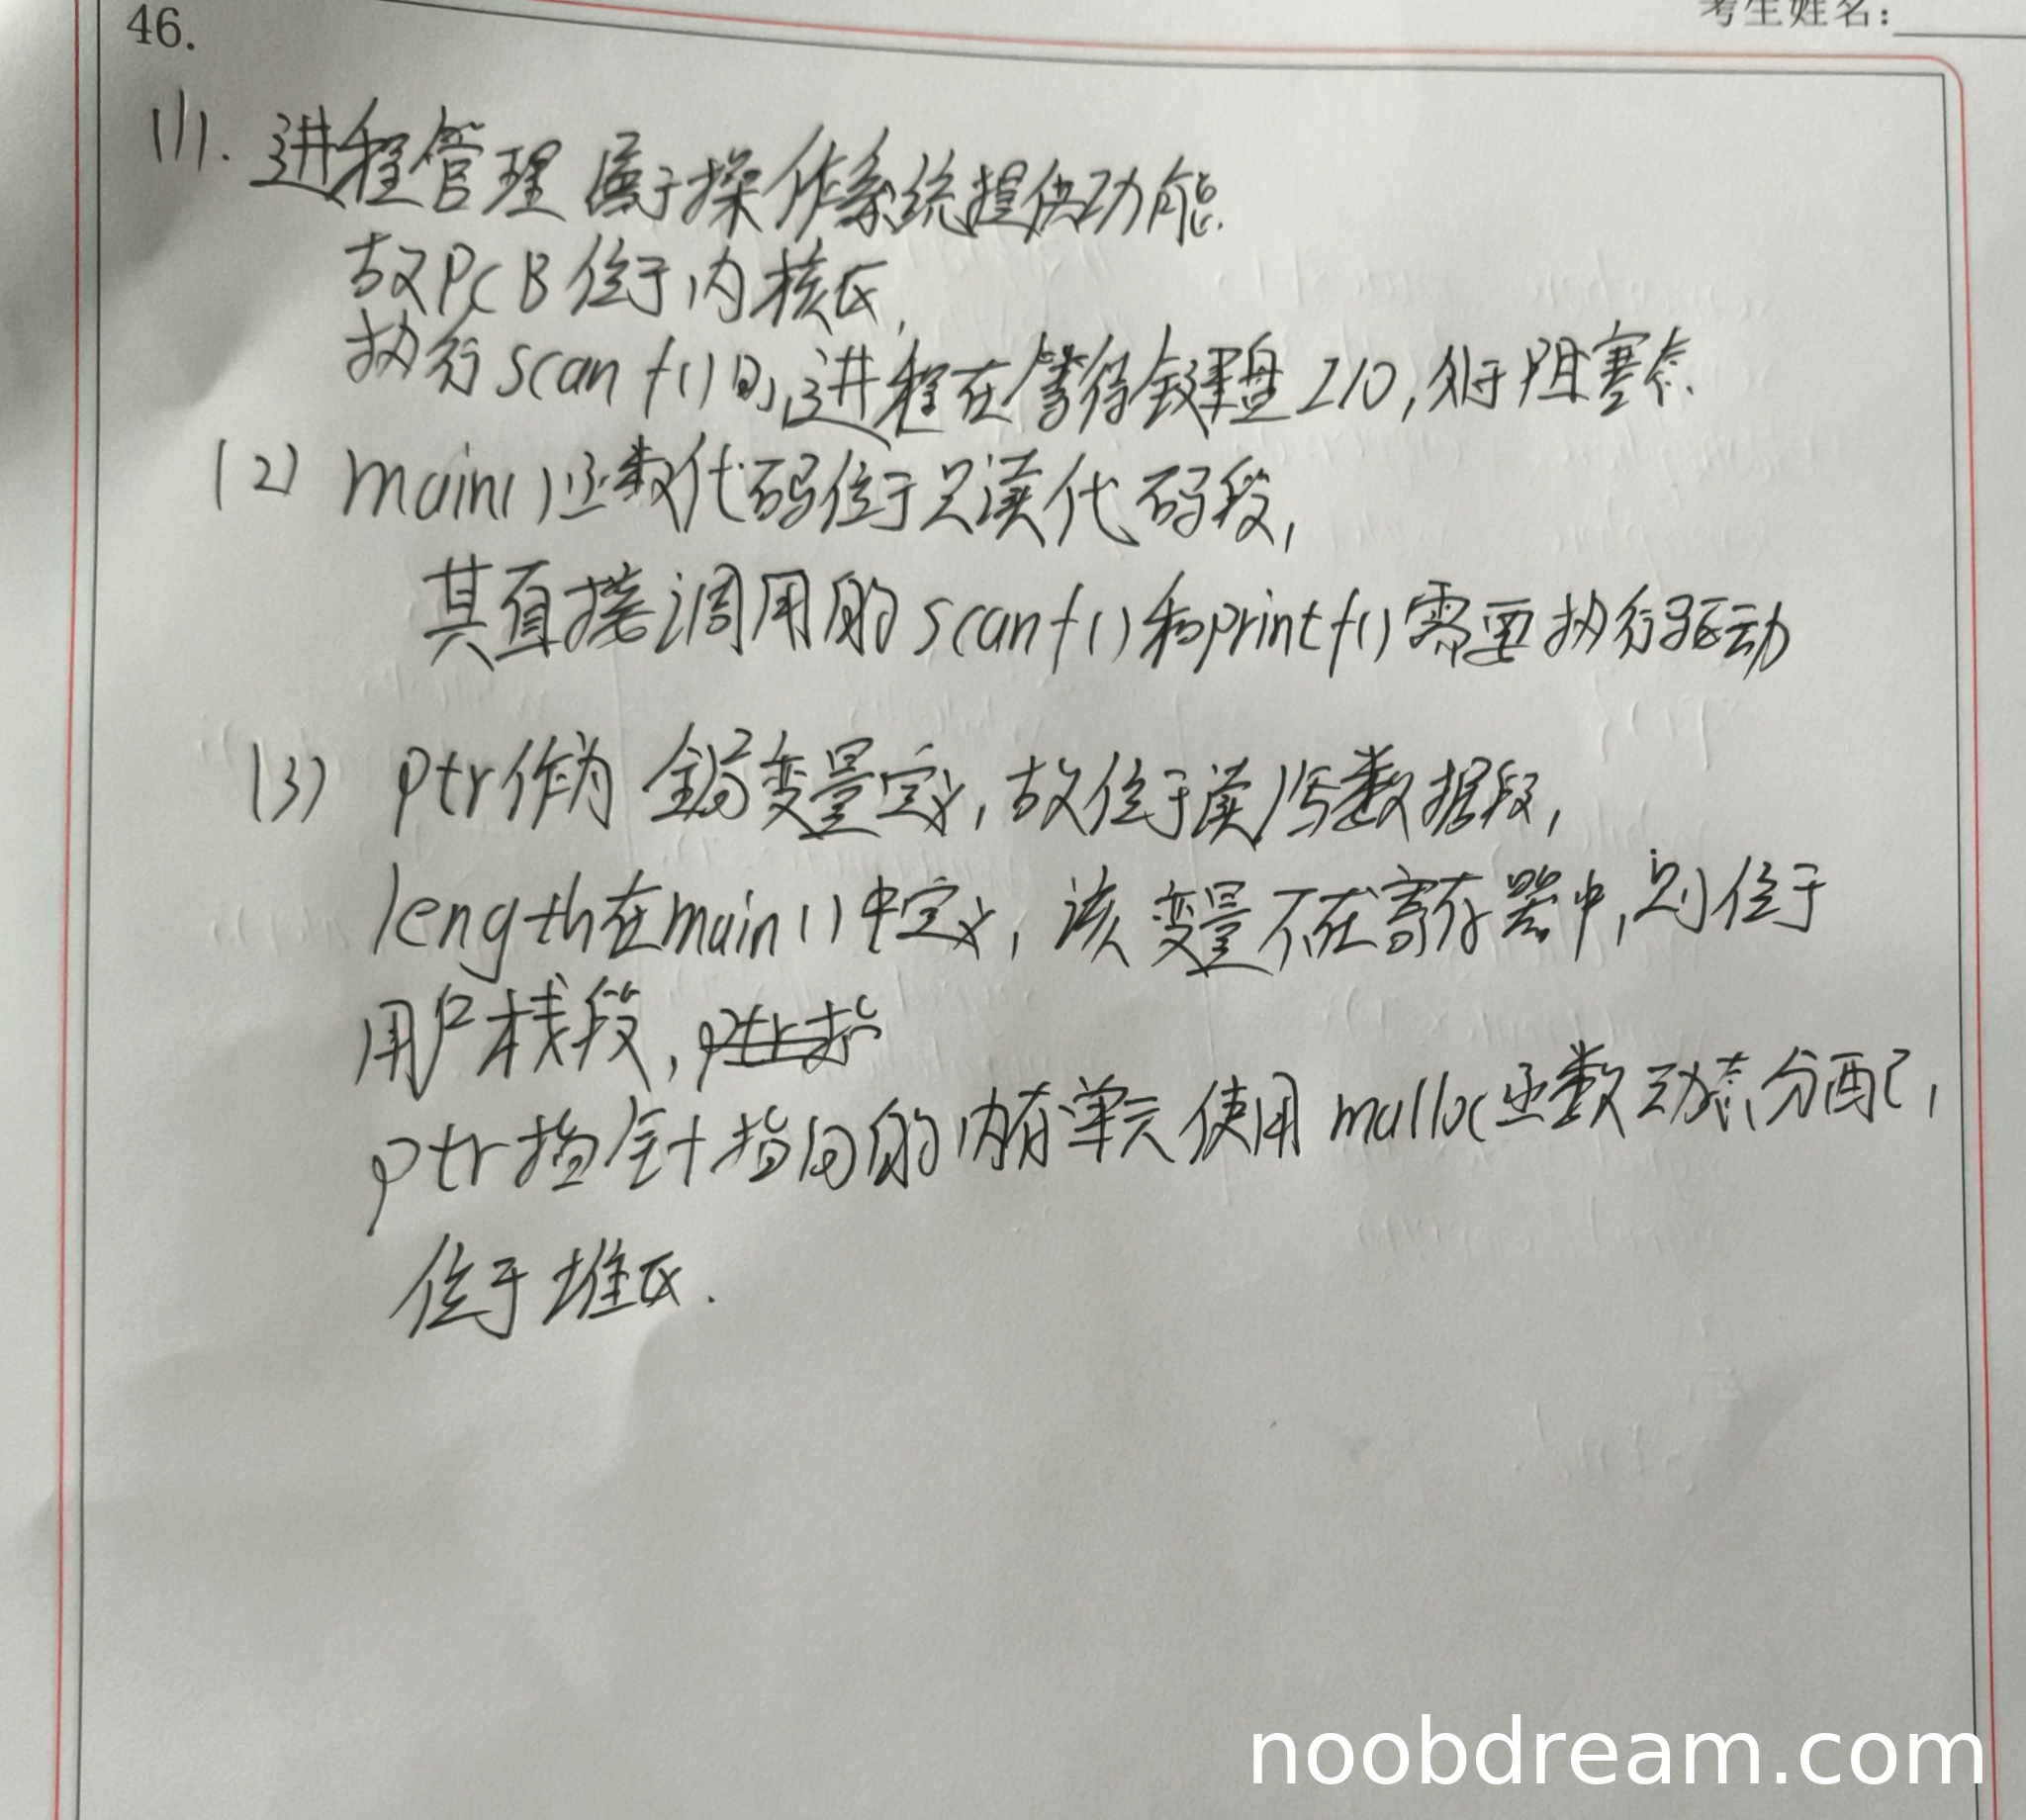 考生姓名：
46.
(1). 进程管理属于操作系统提供功能.
故PCB位于内核区,
执行scanf()时,进程在等待键盘I/O,处于阻塞态.
(2) main()函数代码位于只读代码段,
其直接调用的scanf()和printf()需要执行驱动
(3) ptr作为全局变量定义,故位于读/写数据段,
length在main()中定义,该变量不在寄存器中,则位于
用户栈段,
ptr指针指向的内存单元使用malloc函数动态分配,
位于堆区.
noobdream.com